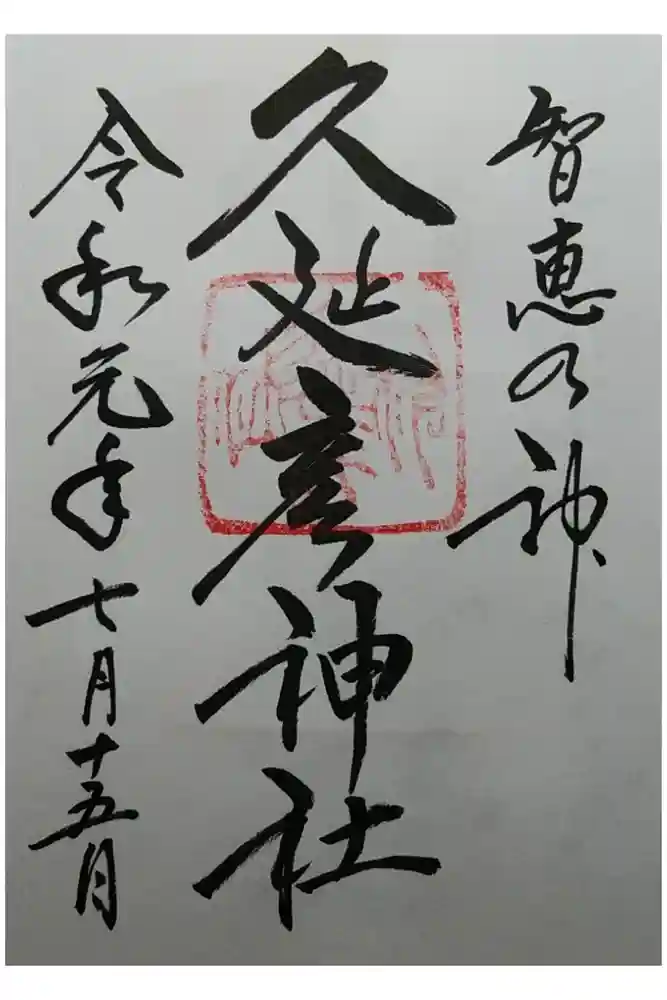 智恵の神
久延彦神社
令和元年七月十五月